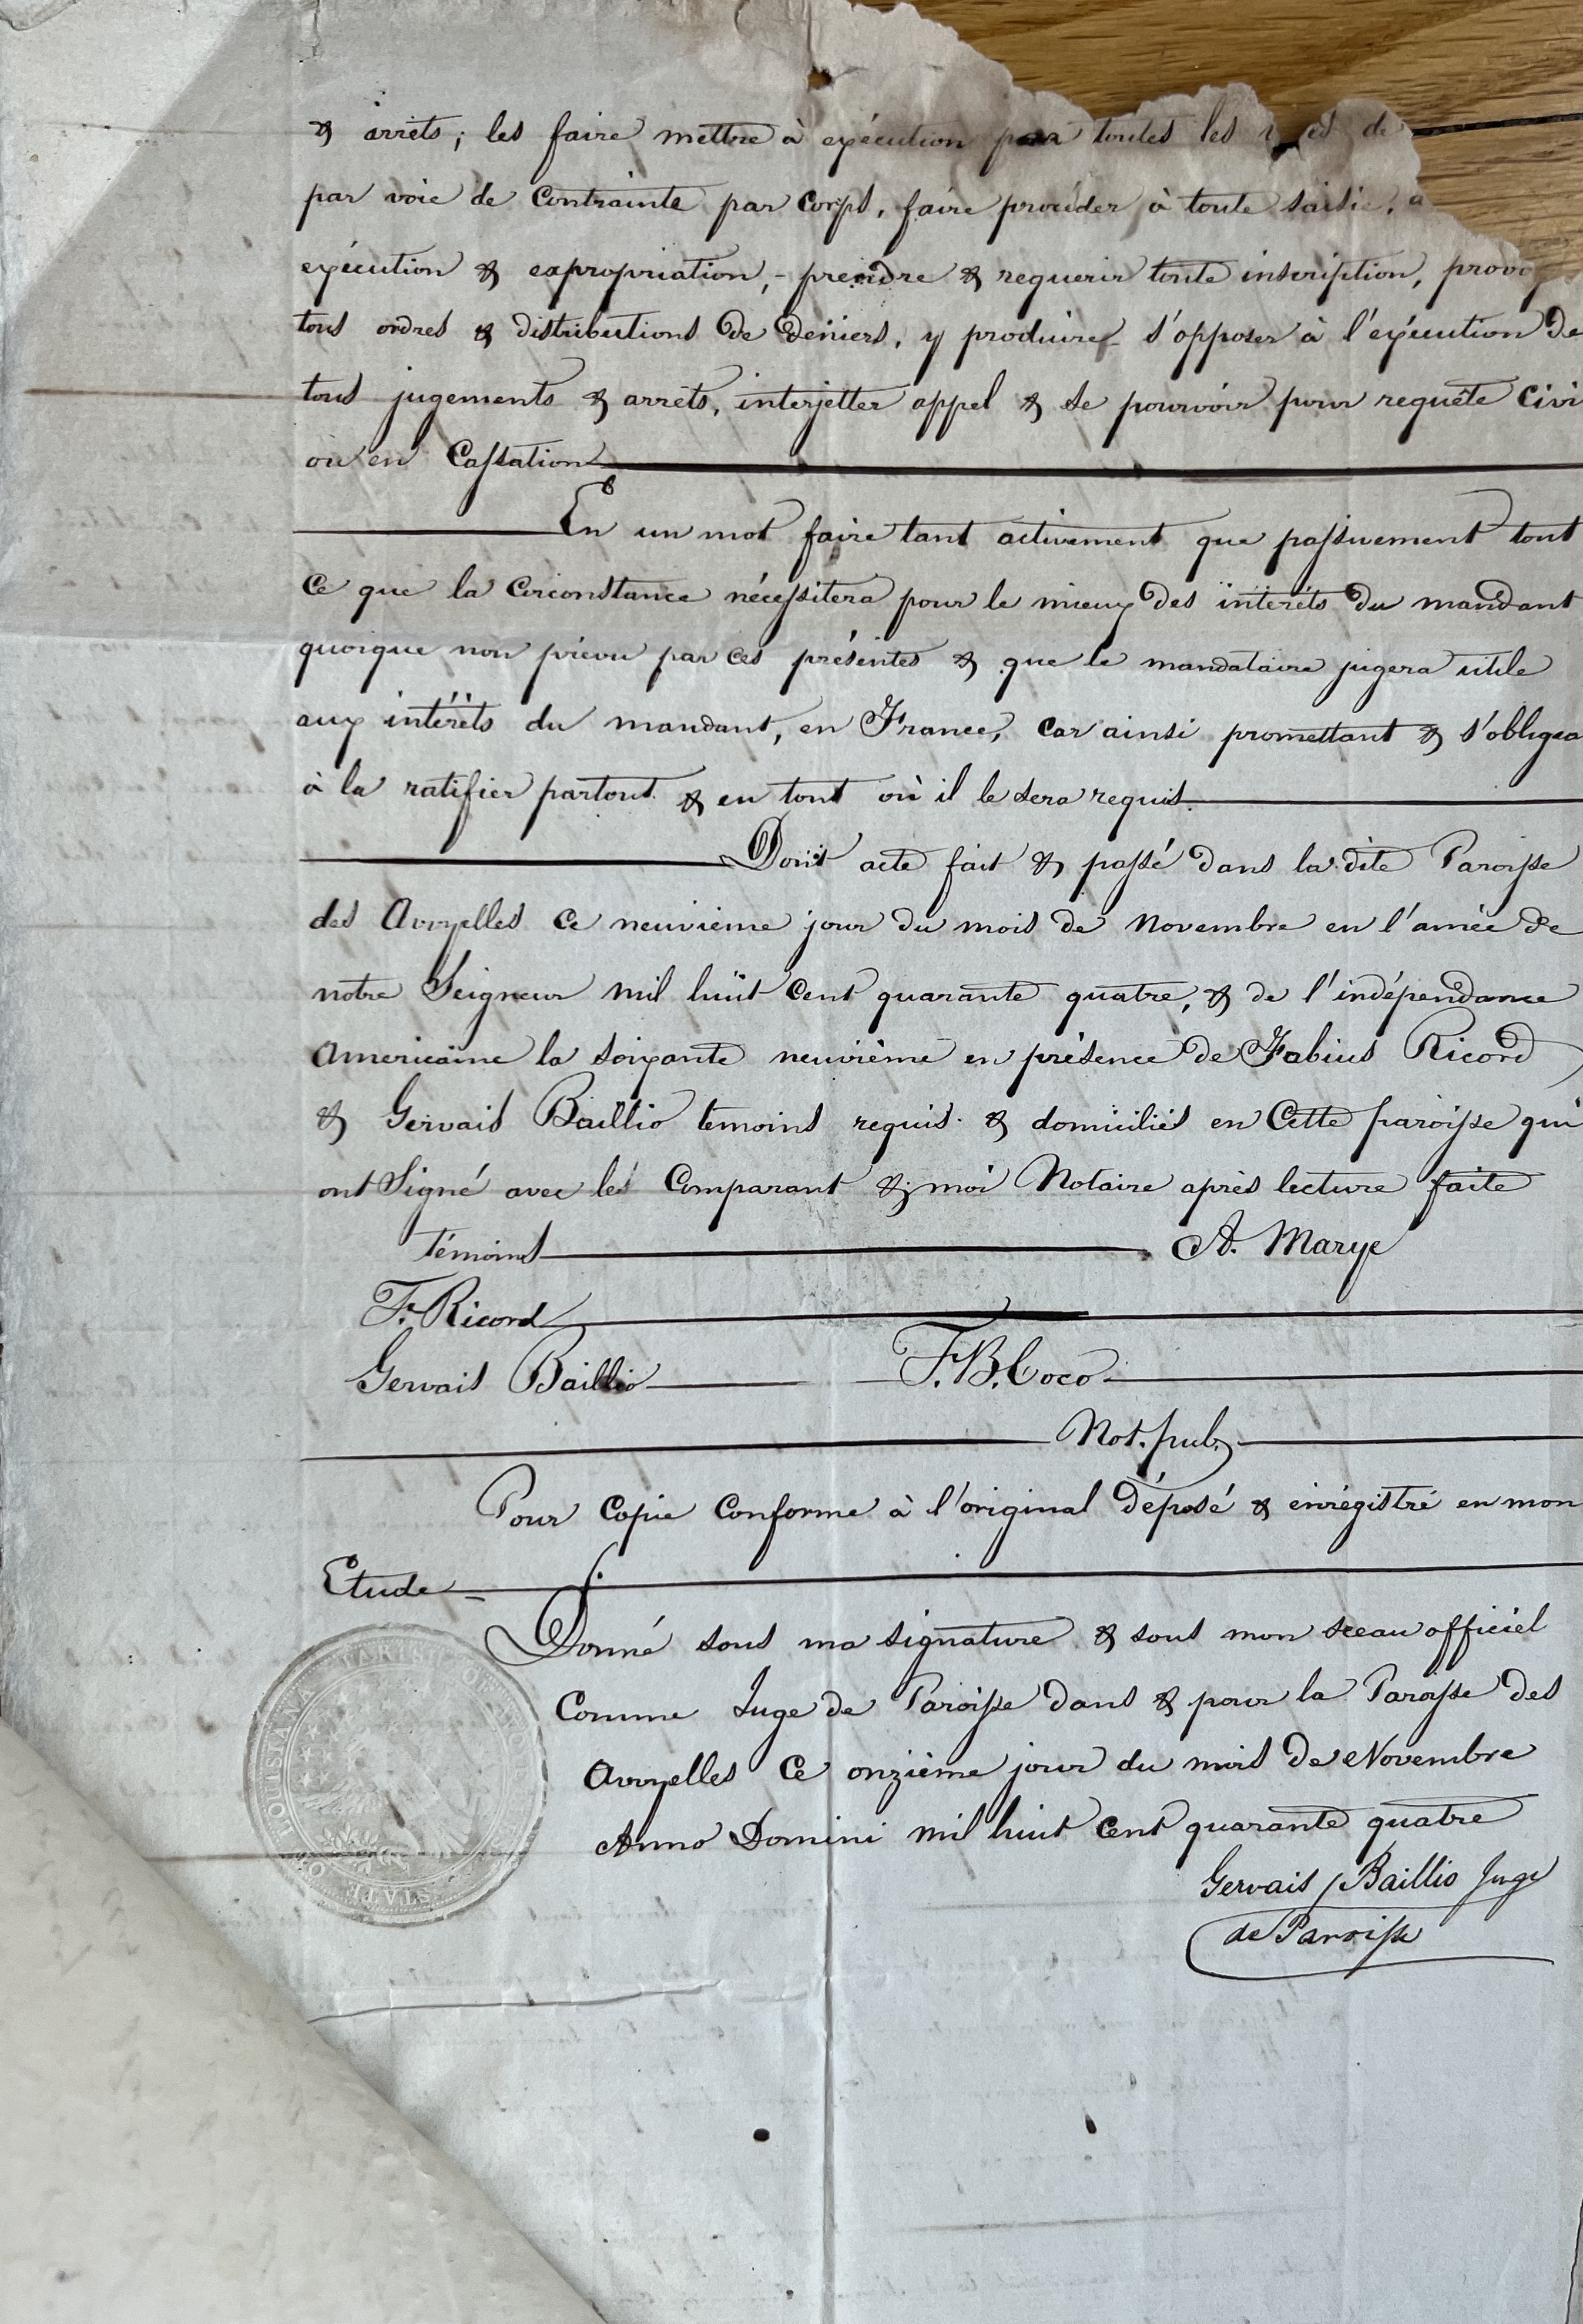 & arrêts; les faire mettre à exécution par toutes les de
par voie de Contrainte par Corps, faire procéder à toute saisie,
exécution & expropriation, - prendre & requerir toute inscription, provo
tous ordres & distributions de deniers, y produire s'opposer à l'exécution de
tous jugements & arrêts, interjetter appel & se pourvoir pour requête Civi
ou en Cassation
En un mot faire tant activement que passivement tout
Ce que la Circonstance nécessitera pour le mieux des interêts du mandant
quoique non prévu par ces présentes & que le mandataire jugera utile
aux intérêts du mandant, en France, Car ainsi promettant & s'obligea
à la ratifier partout & en tout où il le sera requis.
Dont acte fait & passé dans la dite Paroisse
des Avoyelles Ce neuvieme jour du mois de Novembre en l'année de
notre Seigneur mil huit Cent quarante quatre, & de l'indépendance
Americaine la soixante neuvième en présence de Fabius Ricord
& Gervais Baillio temoins requis & domiciliés en Cette paroisse qui
ont Signé avec les Comparant & moi Notaire après lecture faite
témoins A. Marye
F. Ricord
Gervais Baillio F. B. Coco
Not. pub.
Pour Copie Conforme à l'original déposé & enrégistré en mon
Etude
Donné sous ma signature & sous mon sceau officiel
Comme Juge de Paroisse dans & pour la Paroisse des
Avoyelles Ce onzième jour du mois de Novembre
Anno Domini mil huit Cent quarante quatre
Gervais Baillio Juge
de Paroisse
STATE OF LOUISIANA PARISH OF